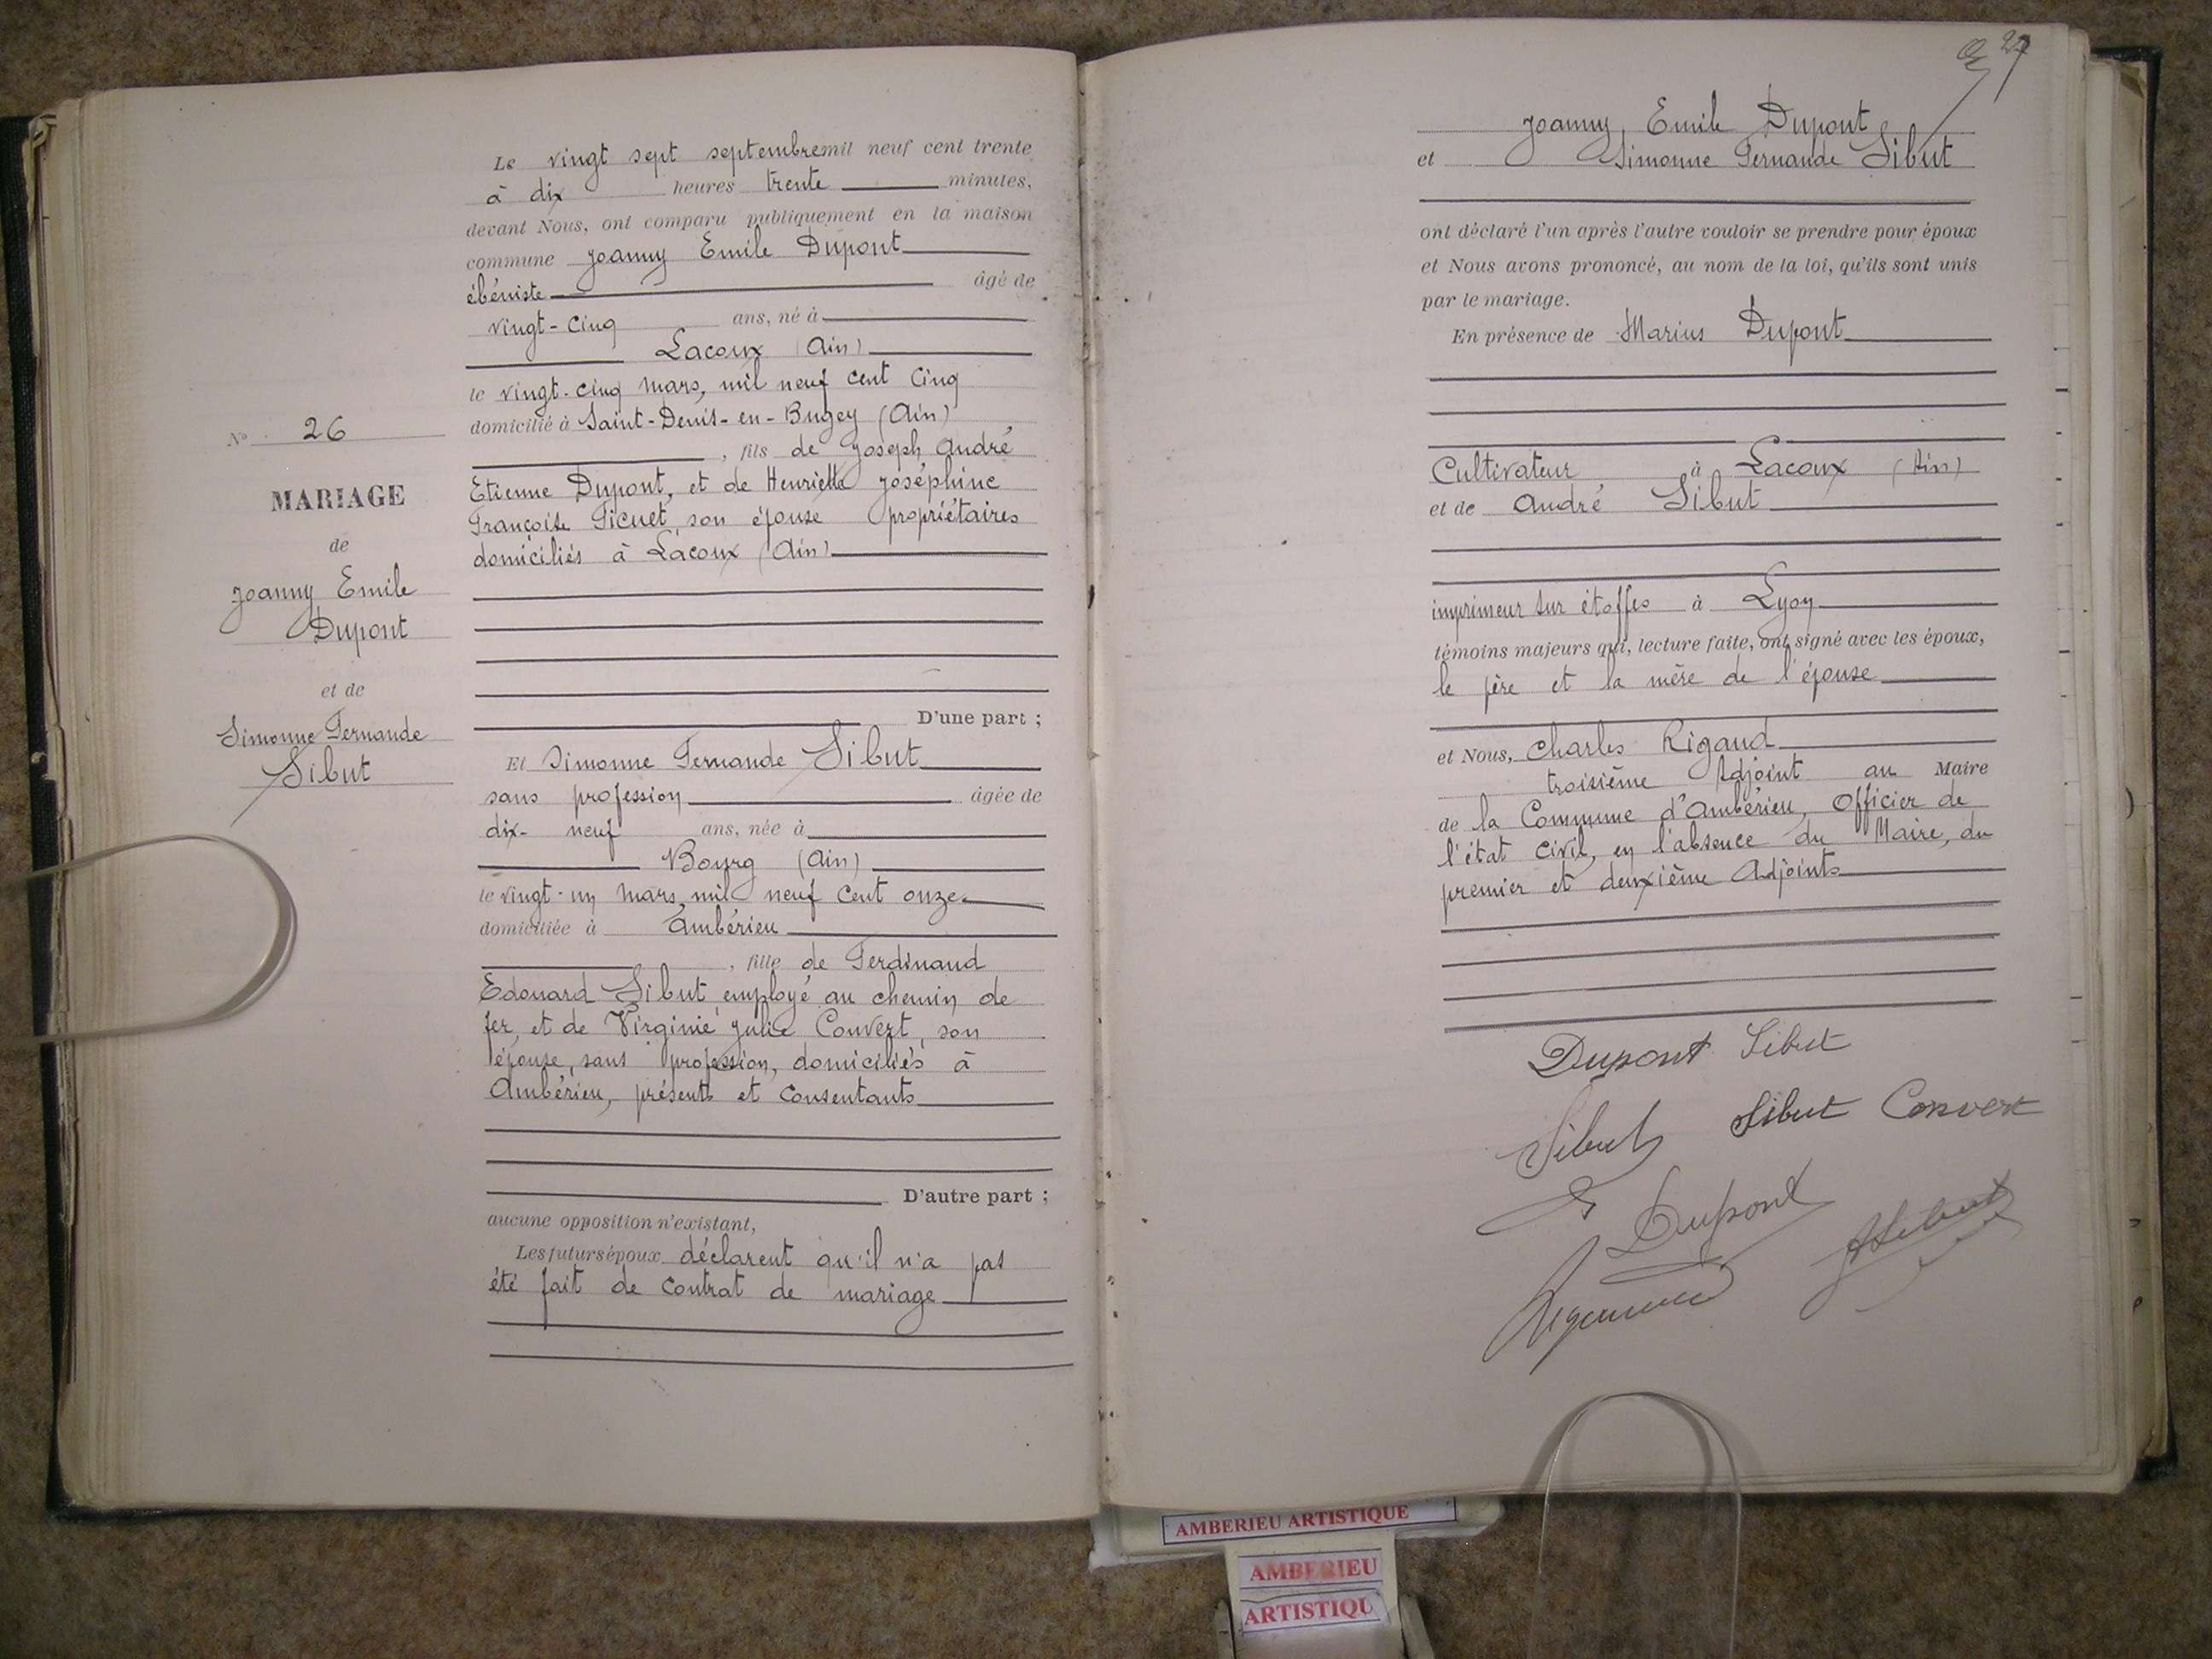 N° 26
MARIAGE
de
Joanny Emile
Dupont
et de
Simonne Fernande
Sibut
Le vingt sept septembre mil neuf cent trente
à dix heures trente minutes,
devant Nous, ont comparu publiquement en la maison
commune Joanny Emile Dupont
ébéniste âgé de
vingt-cinq ans, né à
Lacoux (Ain)
le vingt-cinq mars, mil neuf cent cinq
domicilié à Saint-Denis-en-Bugey (Ain)
, fils de Joseph André
Etienne Dupont, et de Henriette Joséphine
Françoise Picuet, son épouse propriétaires
domiciliés à Lacoux (Ain)
D'une part ;
Et Simonne Fernande Sibut
sans profession âgée de
dix-neuf ans, née à
Bourg (Ain)
le vingt-un mars, mil neuf cent onze
domiciliée à Ambérieu
, fille de Ferdinand
Edouard Sibut employé au chemin de
fer, et de Virginie Julie Convert, son
épouse, sans profession, domiciliés à
Ambérieu, présents et consentants
D'autre part ;
aucune opposition n'existant,
Les futurs époux déclarent qu'il n'a pas
été fait de contrat de mariage
27
Joanny, Emile Dupont
et Simonne Fernande Sibut
ont déclaré l'un après l'autre vouloir se prendre pour époux
et Nous avons prononcé, au nom de la loi, qu'ils sont unis
par le mariage.
En présence de Marius Dupont
Cultivateur à Lacoux (Ain)
et de André Sibut
imprimeur sur étoffes à Lyon
témoins majeurs qui, lecture faite, ont signé avec les époux,
le père et la mère de l'épouse
et Nous, Charles Rigaud
troisième Adjoint au Maire
de la Commune d'Ambérieu, Officier de
l'état civil, en l'absence du Maire, du
premier et deuxième Adjoints
Dupont Sibut
Sibut Sibut Convert
Dupont ASibut
AMBERIEU ARTISTIQUE
AMBERIEU
ARTISTIQU